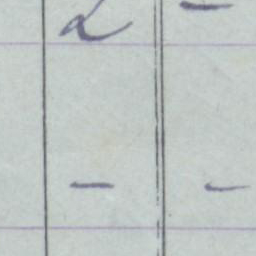 2 -
- -